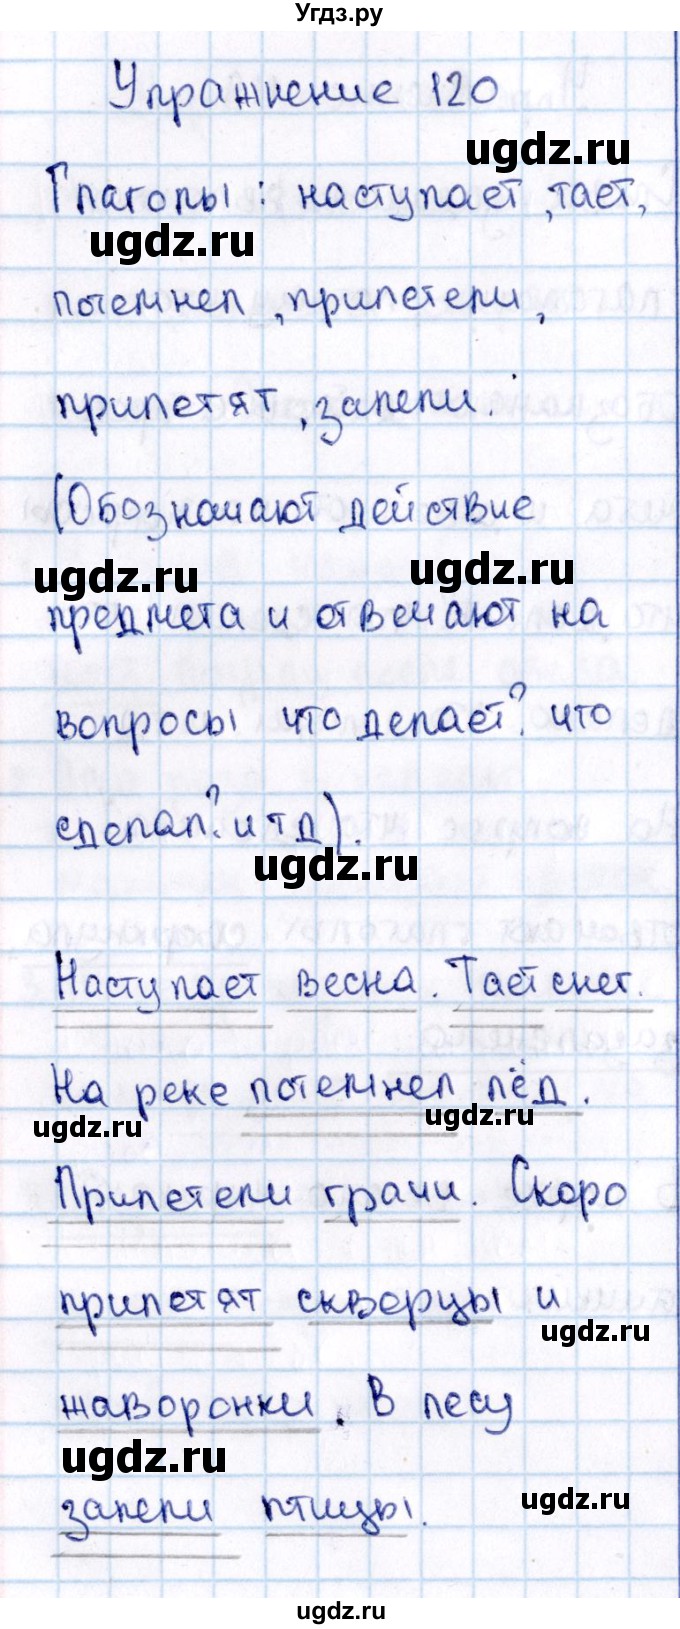 Угдз.ру
Упражнение 120
ugdz.ru
Глаголы: наступает, тает,
ugdz.ru
потемнел, прилетели,
прилетят, запели.
(Обозначают действие
ugdz.ru
ugdz.ru
предмета и отвечают на
вопросы что делает? что
сделал? и т д).
ugdz.ru
Наступает весна. Тает снег.
На реке потемнел лёд.
ugdz.ru
ugdz.ru
Прилетели грачи. Скоро
прилетят скворцы и
ugdz.ru
жаворонки. В лесу
ugdz.ru
запели птицы.
ugdz.ru
ugdz.ru